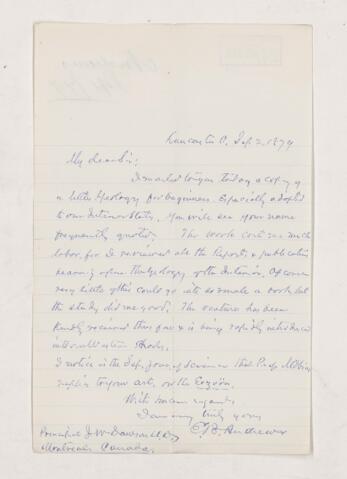 Lancaster O. Sep 2, 1879
My dear Sir:
I mailed to you today a copy of
a little Geology for beginners, especially adapted
to our Interior States. You will see your name
frequently quoted. The work cost me much
labor, for I reviewed all the Reports & publications
bearing upon the Geology of the Interior. Of course
very little of this could go into so small a book but
the study did me good. The venture has been
kindly received thus far & is being rapidly introduced
into
I notice in the Sep. Jour. of Science that Prof. Möbius
replies to your art. on the Eozoön.
With sincere regards
I am very truly yours
E. B. Andrews
Principal J. W. Dawson LL.D.
Montreal Canada.